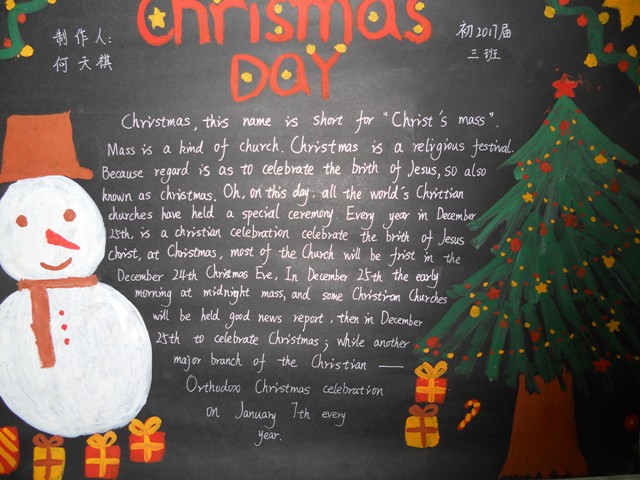 Chrismas
DAY
制作人:
何天祺
初2017届
三班
Christmas, this name is short for "Christ's mass".
Mass is a kind of church. Christmas is a religious festival.
Because regard is as to celebrate the brith of Jesus, so also
known as christmas. Oh, on this day, all the world's Chrittian
churches have held a special ceremony. Every year in December
25th, is a christian celebration celebrate the brith of Jesus
christ, at Christmas, most of the Church will be frist in the
December 24th Christmas Eve, In December 25th the early
morning at midnight mass, and some Christian Churches
will be held good news report, then in December
25th to celebrate Christmas; while another
major branch of the Christian ——
Orthodox Christmas celebration
on January 7th every
year.